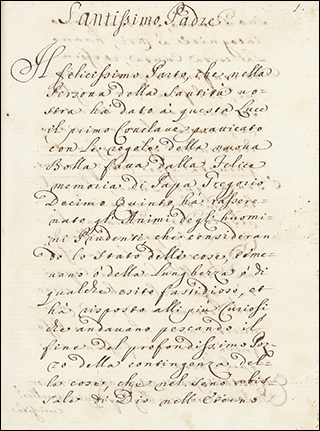 1.
Santissimo Padre
Il felicissimo Parto, che nella
Persona della Santità uo-
stra hà dato a questa Luce
il primo Conclaue pratticato
con Le regole della nuoua
Bolla fatta dalla felice
memoria di Papa Gregorio
Decimo Quinto, hà rassere-
nato gl'Animi degl'huomi-
ni Prudenti, che consideran-
do lo stato delle cose, teme-
uano ò della Lunghezza ò di
qualche esito fastidioso, et
hà risposto alli più Curiosi
che andauano pescando il
fine del profondissimo Poz-
zo della contingenza del-
le cose, che nel seno
di Dio nell'Eterno